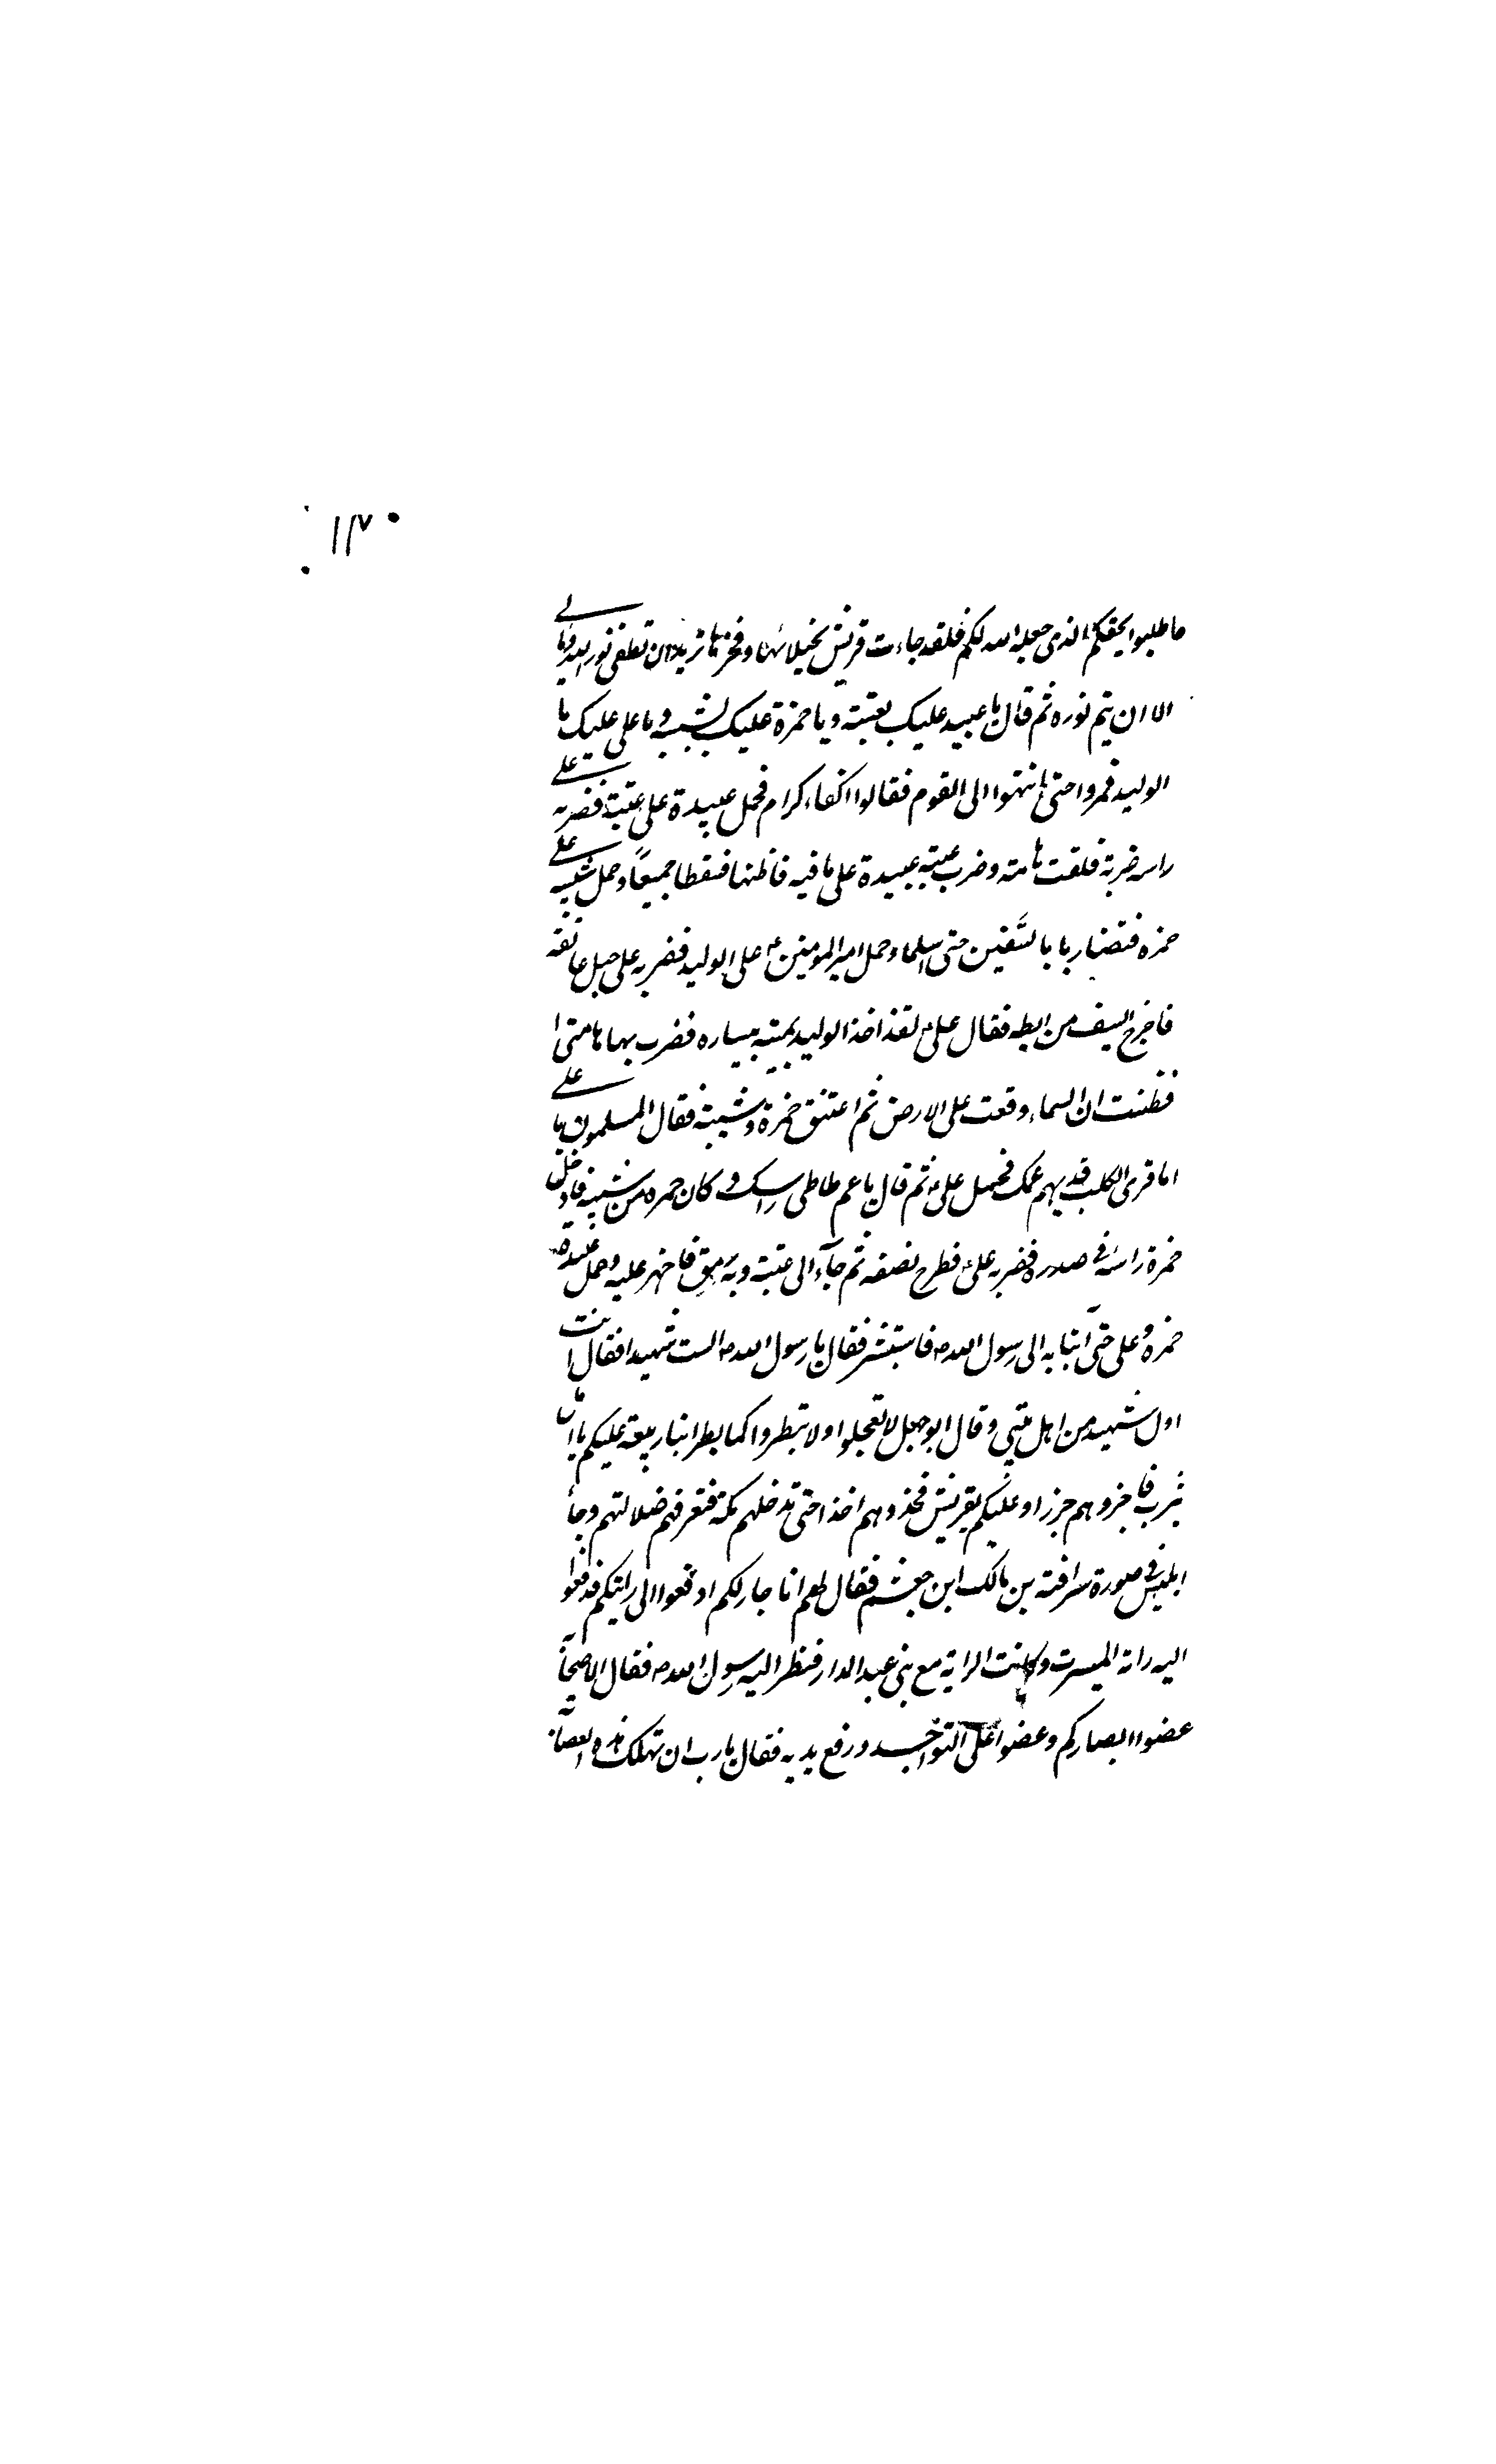 ۱۳۰
ماطلبوا بحقكم الذى جعله الله لكم فلقد جاءت قريش بخيلائها وفخرها تريد ان تطفى نور الله ويابى
الا ان يتم نوره ثم قال يا عبيد عليك بعتبة ويا حمزة عليك بشيبه ويا على عليك با
الوليد فمروا حتى انتهوا الى القوم فقالوا اكفاء كرام فحمل عبيدة على عتبة فضربه على
راسه ضربة فلقت هامته وضرب عتبه عبيدة على ساقيه فاطنها فسقطا جميعًا وحمل شيبه على
حمزه فتضاربا بالسّيفين حتى انثلما وحمل امير المومنين ع على الوليد فضربه على حبل عاتقه
فاخرج السيف من ابطه فقال على لقد اخذ الوليد يمينه بيساره فضرب بها هامتى
فظننت ان السماء وقعت على الارض ثم اعتنق حمزة وشيبة فقال المسلمون يا على
اما ترى الكلب قد بهم عمك فحمل على ثم قال يا عم طاطى راسك وكان حمزه من شيبه فادخل
حمزة راسه فى صدره فضربه على فطرح نصفه ثم جآء الى عتبة وبه رمق فاجهز عليه وحمل عبيدة
حمزه وعلى حتى آتيا به الى رسول الله ص فاستبشر فقال يا رسول الله ص الست شهيدا فقال انت
اول شهيد من اهل بيتى وقال ابوجهل لا تعجلوا ولا تبطروا كما بطر ابنا ربيعة عليكم باهل
يثرب فاجزروهم جزرا وعليكم بقريش فخذوهم اخذا حتى ندخلهم مكة فنعرفهم ضلالتهم وجاء
ابليس فى صورة سراقة بن مالك ابن جعشم فقال لهم انا جار لكم ادفعوا الى رايتكم فدفعوا
اليه راية الميسرت وكانت الراية مع بنى عبد الدار فنظر اليه رسول الله ص فقال لاصحابه
غضوا ابصاركم وعضوا على النواجد ورفع يديه فقال يا رب ان تهلك هذه العصابة